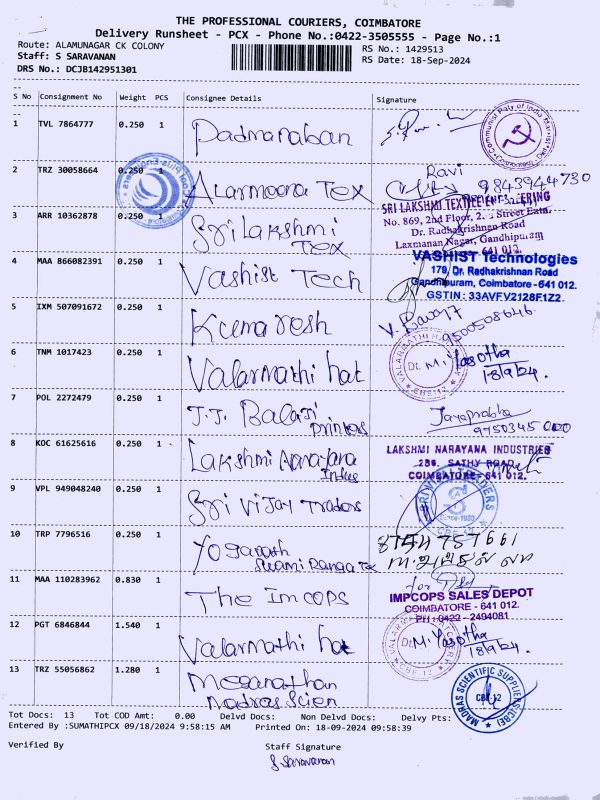 THE PROFESSIONAL COURIERS, COIMBATORE
Delivery Runsheet - PCX - Phone No.:0422-3505555 - Page No.:1
Route: ALAMUNAGAR CK COLONY
Staff: S SARAVANAN
DRS No.: DCJB142951301
RS No.: 1429513
RS Date: 18-Sep-2024
S No Consignment No Weight PCS Consignee Details Signature
1 TVL 7864777 0.250 1 Padmanaban
2 TRZ 30058664 0.250 1 Alarmoana Tex Ravi
9843944730
3 ARR 10362878 0.250 1 Sri Lakshmi
Tex
SRI LAKSHMI TEXTILE
No. 869, 2nd Floor, Street Extn.
Dr. Radhakrishnan Road
Laxmanan Nagar, Gandhipuram
641 012.
4 MAA 866082391 0.250 1 Vashist Tech
VASHIST Technologies
179, Dr. Radhakrishnan Road
Gandhipuram, Coimbatore - 641 012.
GSTIN: 33AVFV2128F1Z2
5 IXM 507091672 0.250 1 Kumaresh
9500508646
6 TNM 1017423 0.250 1 Valarmathi hat
Dt. M. Yasotha
18/9/24.
7 POL 2272479 0.250 1 J.J. Balaji
Printers
Jayaprabha
8 KOC 61625616 0.250 1 Lakshmi Narayana
Indus
LAKSHMI NARAYANA INDUSTRIES
286, SATHY ROAD
COIMBATORE - 641 012.
9 VPL 949048240 0.250 1 Sri Vijay Traders
Since-1980
10 TRP 7796516 0.250 1 Yoganath
Swami Ranga Tex
8754 757661
11 MAA 110283962 0.830 1 The Imcops
for
IMPCOPS SALES DEPOT
COIMBATORE - 641 012.
PH : 0422 - 2494081
12 PGT 6846844 1.540 1 Valarmathi hat
Dt. M. Yasotha
18/9/24.
13 TRZ 55056862 1.280 1 Meganathan
Madras Scien
MADRAS SCIENTIFIC SUPPLIERS (CBE)
CBE-12
Tot Docs: 13 Tot COD Amt: 0.00 Delvd Docs: Non Delvd Docs: Delvy Pts:
Entered By :SUMATHIPCX 09/18/2024 9:58:15 AM Printed On: 18-09-2024 09:58:39
Verified By Staff Signature
S Saravanan